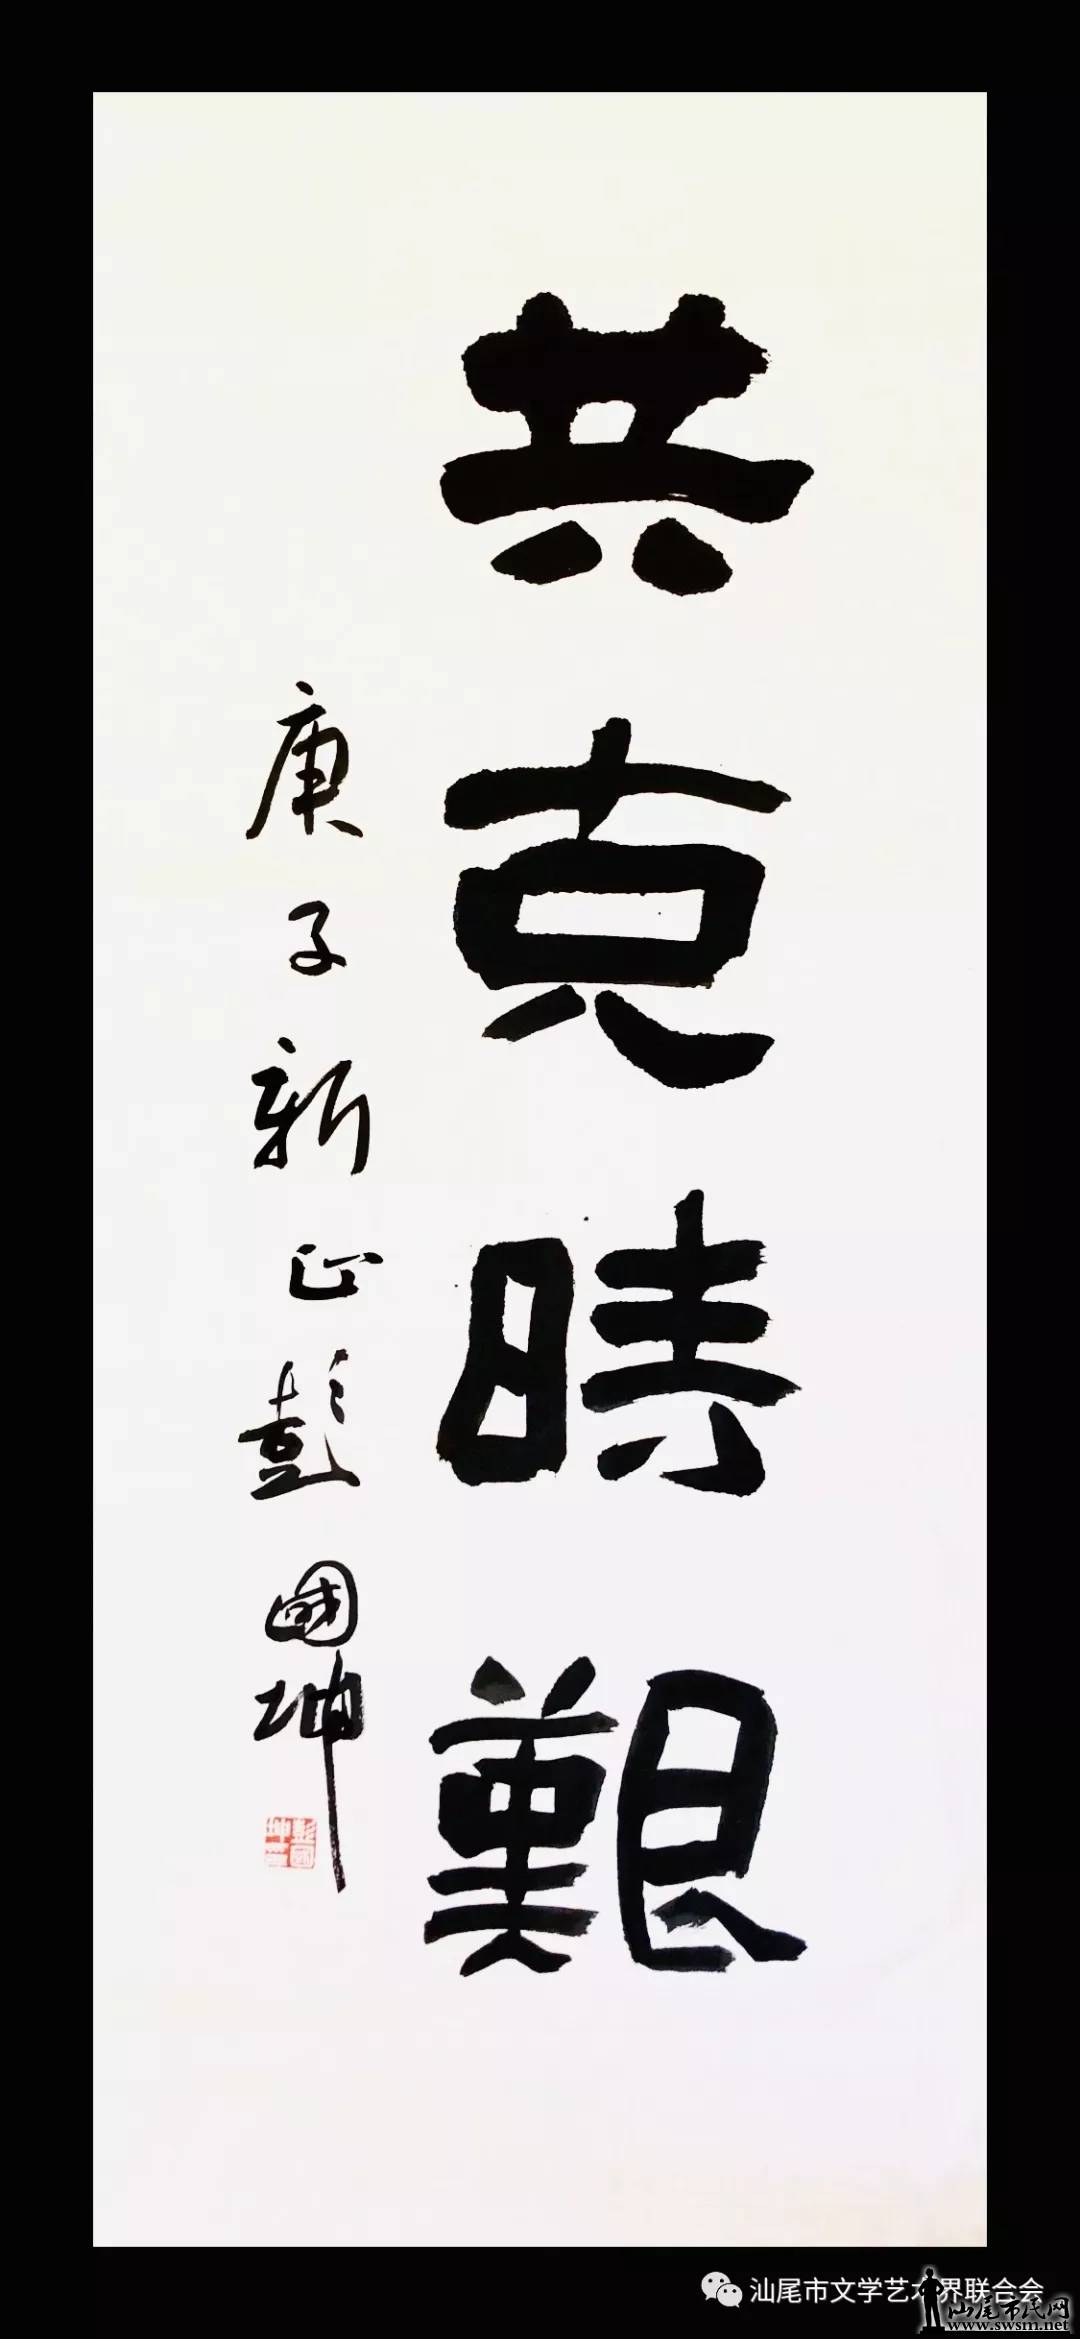 共克時艱
庚子新正彭國坤
汕尾市文学艺术界联合会
汕尾市民网
www.swsm.net